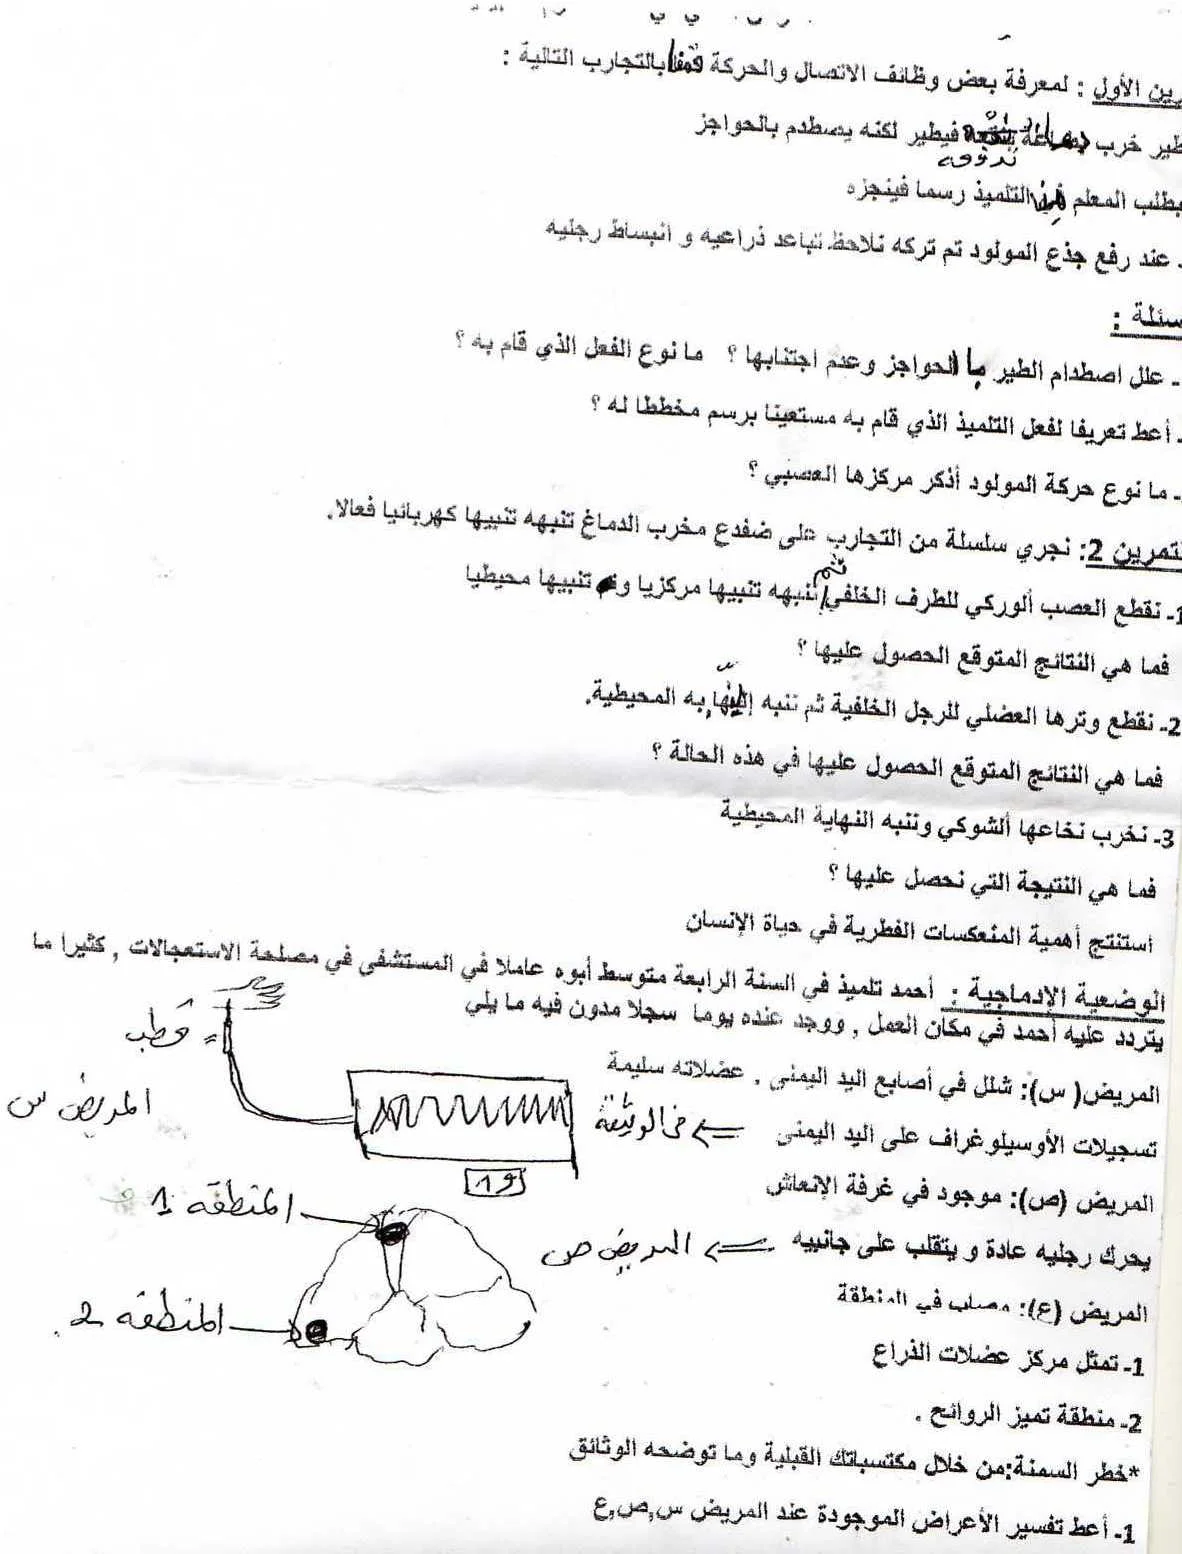 رين الأول : لمعرفة بعض وظائف الاتصال والحركة قمنا بالتجارب التالية :
طير خرب دماغه فيطير لكنه يصطدم بالحواجز
يطلب المعلم من التلميذ رسما فينجزه
- عند رفع جذع المولود تم تركه نلاحظ تباعد ذراعيه و انبساط رجليه
سئلة :
- علل اصطدام الطير بالحواجز وعدم اجتنابها ؟ ما نوع الفعل الذي قام به ؟
- أعط تعريفا لفعل التلميذ الذي قام به مستعينا برسم مخططا له ؟
- ما نوع حركة المولود أذكر مركزها العصبي ؟
لتمرين 2: نجري سلسلة من التجارب على ضفدع مخرب الدماغ تنبهه تنبيها كهربائيا فعالا.
1- نقطع العصب ألوركي للطرف الخلفي ننبهه تنبيها مركزيا و تنبيها محيطيا
فما هي النتائج المتوقع الحصول عليها ؟
2- نقطع وترها العضلي للرجل الخلفية ثم ننبه المحيطية.
فما هي النتائج المتوقع الحصول عليها في هذه الحالة ؟
3- نخرب نخاعها ألشوكي وننبه النهاية المحيطية
فما هي النتيجة التي نحصل عليها ؟
استنتج أهمية المنعكسات الفطرية في حياة الإنسان
الوضعية الإدماجية : أحمد تلميذ في السنة الرابعة متوسط أبوه عاملا في المستشفى في مصلحة الاستعجالات , كثيرا ما
يتردد عليه أحمد في مكان العمل , ووجد عنده يوما سجلا مدون فيه ما يلي
قطب
المريض( س): شلل في أصابع اليد اليمنى , عضلاته سليمة
المريض س
تسجيلات الأوسيلوغراف على اليد اليمنى ⇐ في الوثيقة
و1
المريض (ص): موجود في غرفة الإنعاش
المنطقة 1
يحرك رجليه عادة و يتقلب على جانبيه ⇐ المريض ص
المريض (ع): مصاب في المنطقة
المنطقة 2
1- تمثل مركز عضلات الذراع
2- منطقة تميز الروائح .
*خطر السمنة:من خلال مكتسباتك القبلية وما توضحه الوثائق
1- أعط تفسير الأعراض الموجودة عند المريض س,ص,ع